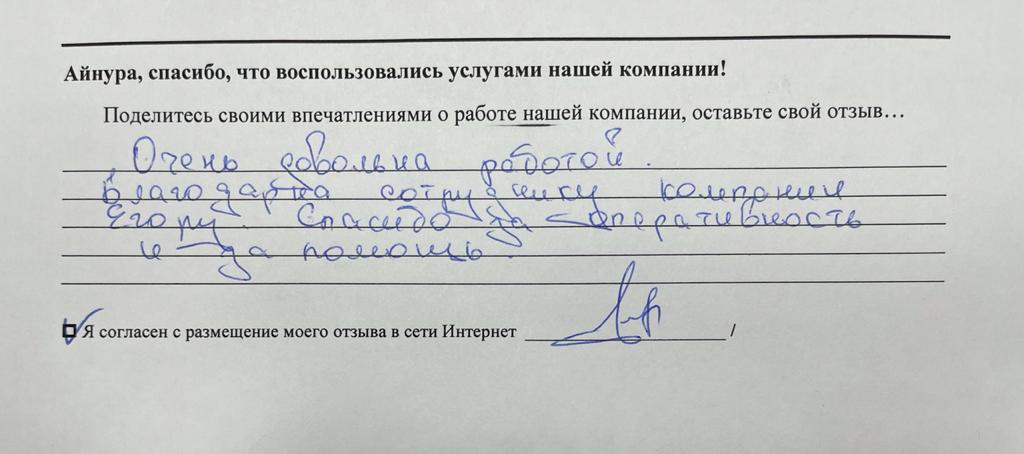 Айнура, спасибо, что воспользовались услугами нашей компании!
Поделитесь своими впечатлениями о работе нашей компании, оставьте свой отзыв…
Очень довольна работой.
Благодарна сотруднику компании
Егору. Спасибо за оперативность
и за помощь.
Я согласен с размещение моего отзыва в сети Интернет /